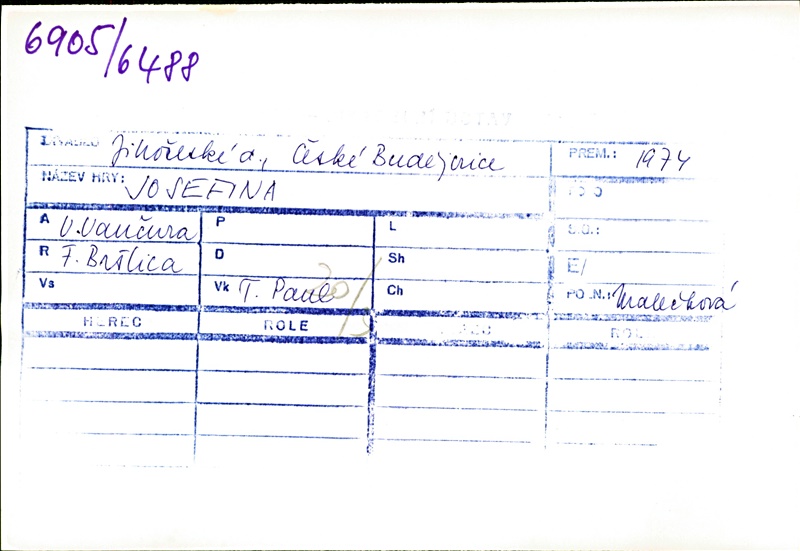 6905/6488
DIVADLO Jihočeské d., České Budějovice PREM.: 1974
NÁZEV HRY: JOSEFINA FOTO
A V. Vančura P L S.Q.:
R F. Bršlica D Sh E/
Vs Vk T. Paul Ch POZN.: Malečková
HEREC ROLE HEREC ROLE